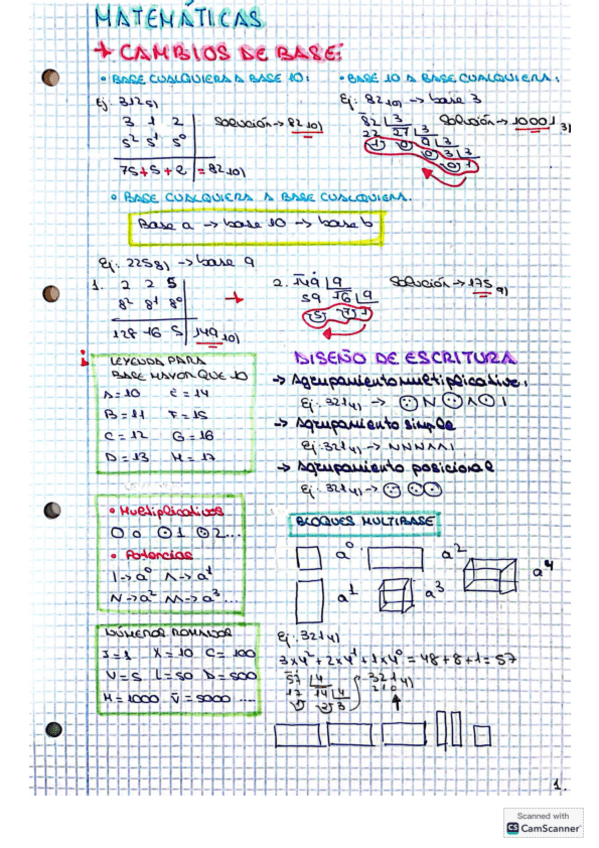 MATEMÁTICAS
+ CAMBIOS DE BASE:
• BASE CUALQUIERA A BASE 10:
Ej: 312 5)
3 1 2
5² 5¹ 5⁰
75+5+2 = 82 10)
Solución → 82 10)
• BASE 10 A BASE CUALQUIERA:
Ej: 82 10) → base 3
82 3
22 27 3
1 0 9 3
0 3 3
0 1
Solución → 10001 3)
• BASE CUALQUIERA A BASE CUALQUIERA.
Base a → base 10 → base b
Ej: 225 8) → base 9
1. 2 2 5
8² 8¹ 8⁰
128 16 5 149 10)
+
2. 149 9
59 16 9
5 7 1
Solución → 175 9)
LEYENDA PARA
BASE MAYOR QUE 10
A=10 E=14
B=11 F=15
C=12 G=16
D=13 H=17
DISEÑO DE ESCRITURA
→ Agrupamiento multiplicativo:
Ej: 321 4) →
→ Agrupamiento simple
Ej: 321 4) → NNNΛΛI
→ Agrupamiento posicional
Ej: 321 4) →
• Multiplicativos
O 0 1 2...
• Potencias
I → a⁰ Λ → a¹
N → a² M → a³...
BLOQUES MULTIBASE
a⁰
a²
a¹
a³
a⁴
NÚMEROS ROMANOS
I=1 X=10 C=100
V=5 L=50 D=500
M=1000 V̄=5000 ....
Ej: 321 4)
3x4²+2x4¹+1x4⁰ = 48+8+1 = 57
57 4
17 14 4
1 2 3
321 4)
2 1 0
1.
Scanned with
CS CamScanner